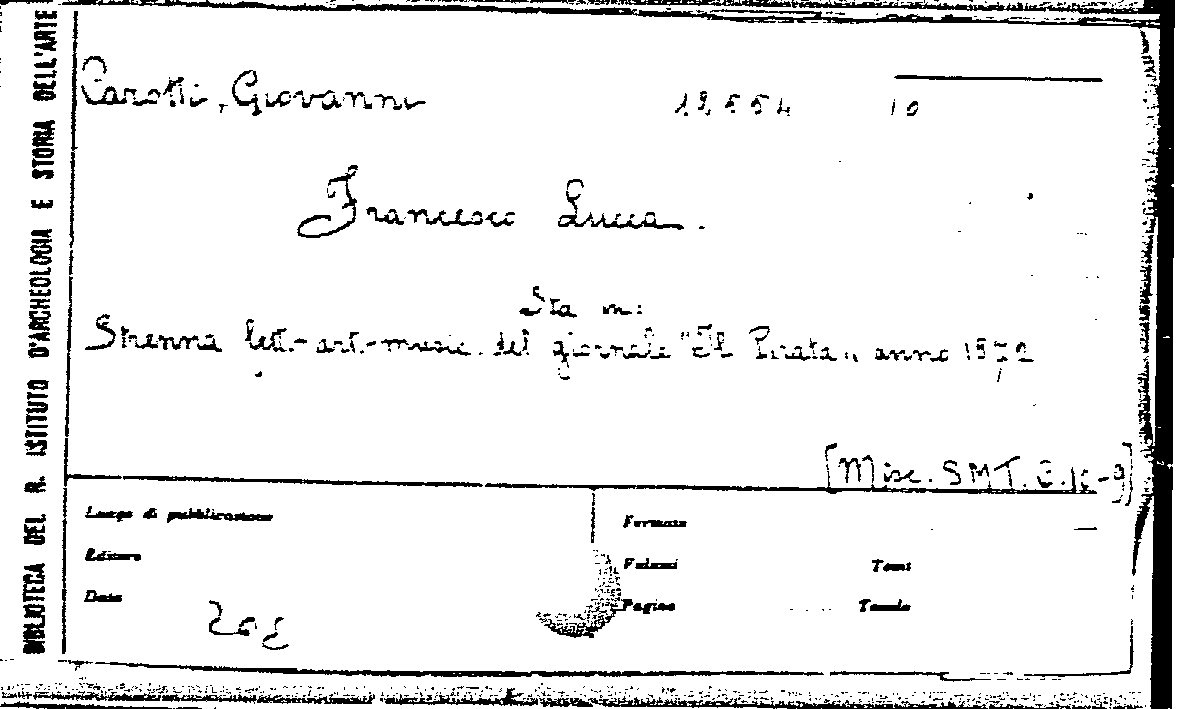 BIBLIOTECA DEL R. ISTITUTO D'ARCHEOLOGIA E STORIA DELL'ARTE
Carotti, Giovanni 12554 10
Francesco Lucca.
Sta in:
Strenna lett.-art.-music. del giornale "Il Pirata" anno 1872
[Misc. SMT. C.16-9]
Luogo di pubblicazione
Editore
Data
Formato
Volumi Tomi
Pagine Tavole